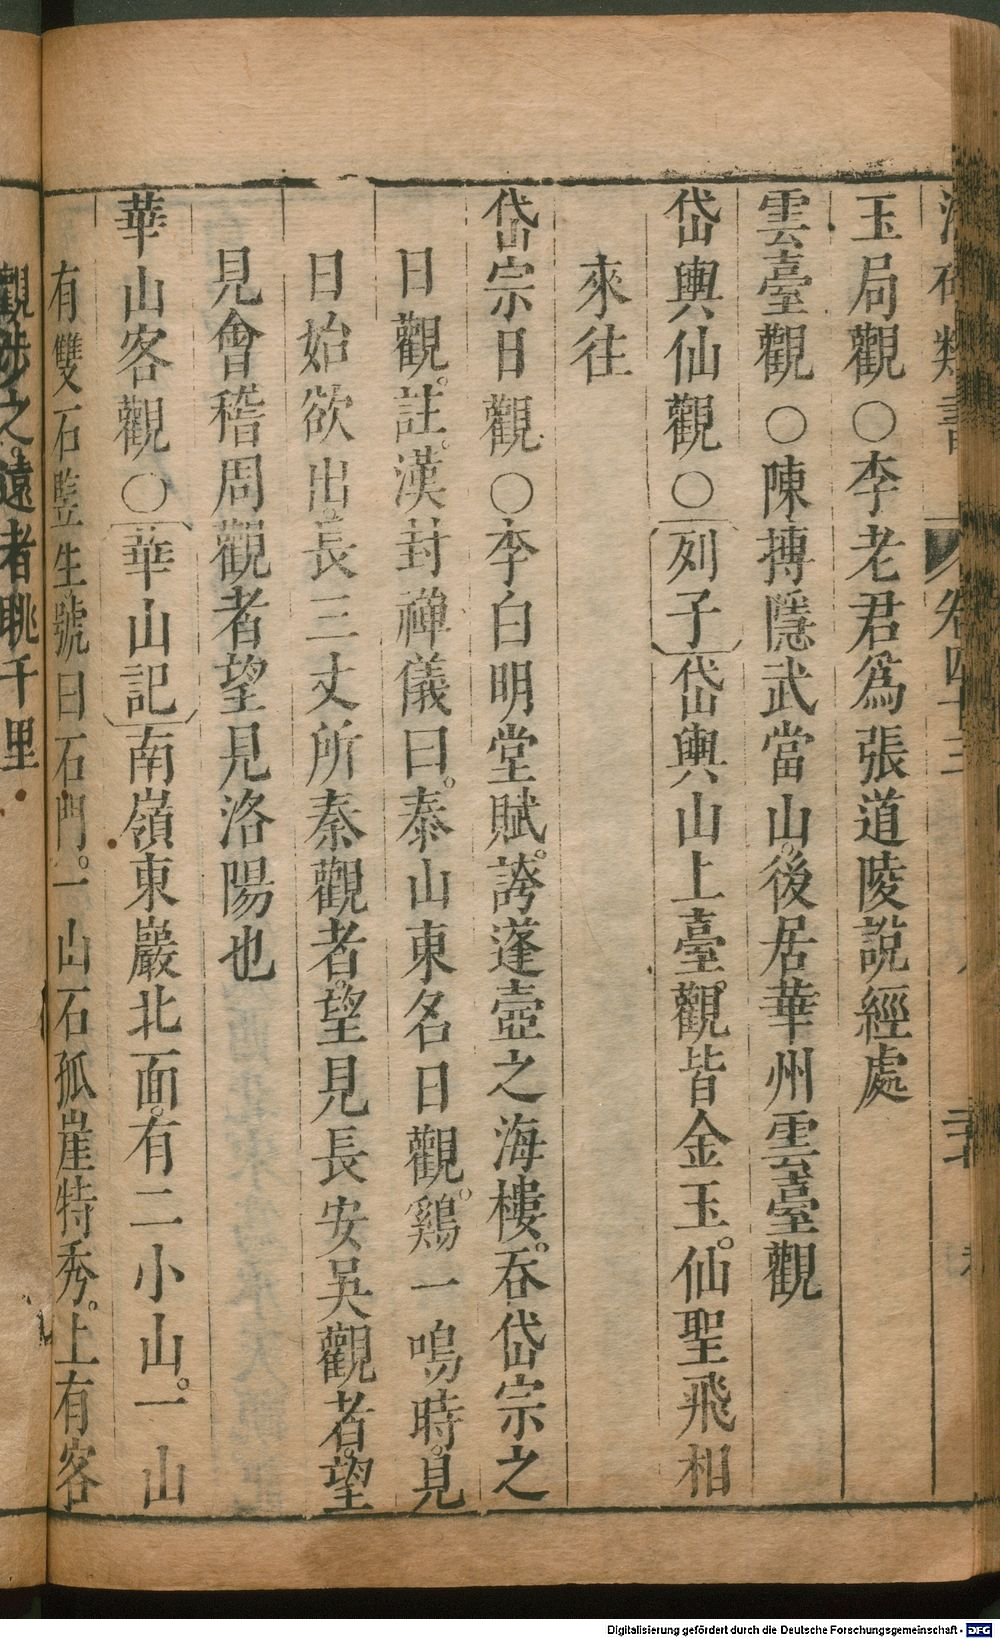 類書 卷四十三
玉局觀○李老君爲張道陵說經處
雲臺觀○陳摶隱武當山。後居華州雲臺觀
岱輿仙觀○〔列子〕岱輿山上臺。觀皆金玉。仙聖飛相
來往
岱宗日觀○李白明堂賦。誇蓬壺之海樓。吞岱宗之
日觀。註。漢封禅儀曰。泰山東名日觀。鷄一鳴時。見
日始欲出。長三丈所秦觀者。望見長安吳觀者。望
見會稽周觀者望見洛陽也
華山客觀○〔華山記〕南嶺東巖北面。有二小山。一山
有雙石監生號曰石門。一山石孤崖特秀。上有客
觀陟之。遠者眺千里
Digitalisierung gefördert durch die Deutsche Forschungsgemeinschaft - DFG